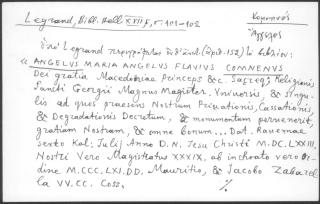 Legrand, Bibl. Hell. XVIIe, σ. 101-103
Κομνηνός
Ἄγγελος
ὑπὸ Legrand περιγράφεται (ἀριθ. 152) τὸ βιβλίον:
« ANGELUS MARIA ANGELUS FLAVIUS COMNENUS
Dei gratia Macedoniae Princeps &c. Sacrae Religionis
Sancti Georgii Magnus Magister. Vniuersis, & singu-
lis ad quos praesens Nostrum Priuationis, Cassationis,
& Degradationis Decretum, & monumentum peruenerit,
gratiam Nostram, & omne bonum... Dat. Rauennae
sexto Kal. Julij Anno D.N. Jesu Christi M.DC.LXXIII.
Nostri Vero Magistratus XXXIX, ab inchoato vero Or-
dine M.CCC.LXI.DD. Mauritio, & Jacobo Zabarel-
la VV.CC. Coss.
·/.